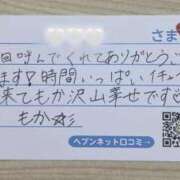 さま
回呼んでくれてありがとうご
ます!時間いっぱいイチャ
来てもか沢山幸せです
もか
ヘブンネット口コミ→